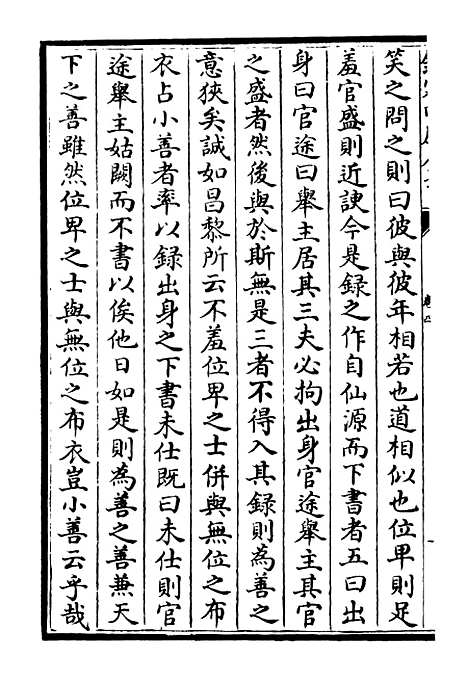 笑之問之則曰彼與彼年相若也道相似也位卑則足
羞官盛則近諛今是録之作自仙源而下書者五曰出
身曰官途曰舉主居其三夫必拘出身官途舉主其官
之盛者然後與於斯無是三者不得入其録則為善之
意狹矣誠如昌黎所云不羞位卑之士併與無位之布
衣占小善者率以録出身之下書未仕既曰未仕則官
途舉主姑闕而不書以俟他日如是則為善之善兼天
下之善雖然位卑之士與無位之布衣豈小善云乎哉